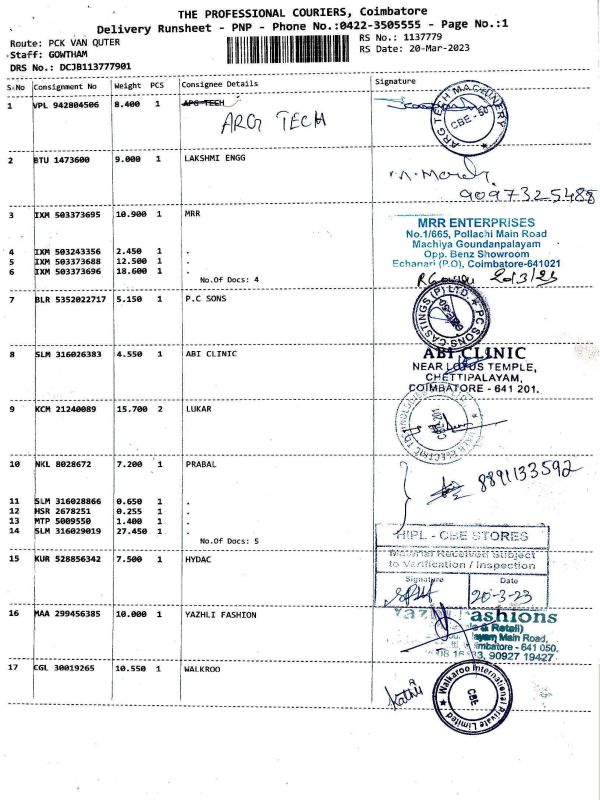 THE PROFESSIONAL COURIERS, Coimbatore
Delivery Runsheet - PNP - Phone No.:0422-3505555 - Page No.:1
Route: PCK VAN QUTER
RS No.: 1137779
Staff: GOWTHAM
RS Date: 20-Mar-2023
DRS No.: DCJB113777901
S.No Consignment No Weight PCS Consignee Details Signature
1 VPL 942804506 8.400 1 APG TECH
ARG TECH
ARG TECH MACHINERY
CBE-50
2 BTU 1473600 9.000 1 LAKSHMI ENGG
9097325488
3 IXM 503373695 10.900 1 MRR
MRR ENTERPRISES
No.1/665, Pollachi Main Road
Machiya Goundanpalayam
4 IXM 503243356 2.450 1 .
Opp. Benz Showroom
5 IXM 503373688 12.500 1 .
Echanari (P.O), Coimbatore-641021
6 IXM 503373696 18.600 1 .
No.Of Docs: 4
20/3/23
7 BLR 5352022717 5.150 1 P.C SONS
PC SONS CASTINGS (P) LTD.
8 SLM 316026383 4.550 1 ABI CLINIC
ABI CLINIC
NEAR LOTUS TEMPLE,
CHETTIPALAYAM,
COIMBATORE - 641 201.
9 KCM 21240089 15.700 2 LUKAR
10 NKL 8028672 7.200 1 PRABAL
8891133592
11 SLM 316028866 0.650 1 .
12 HSR 2678251 0.255 1 .
13 MTP 5009550 1.400 1 .
14 SLM 316029019 27.450 1 .
No.Of Docs: 5
HIPL - CBE STORES
Material Received Subject
to Verification / Inspection
15 KUR 528856342 7.500 1 HYDAC
Signature Date
20-3-23
16 MAA 299456385 10.000 1 YAZHLI FASHION
Fashions
& Retail)
Main Road,
641 050.
90927 19427
17 CGL 30019265 10.550 1 WALKROO
Kathi
Walkaroo International Private Limited
CBE